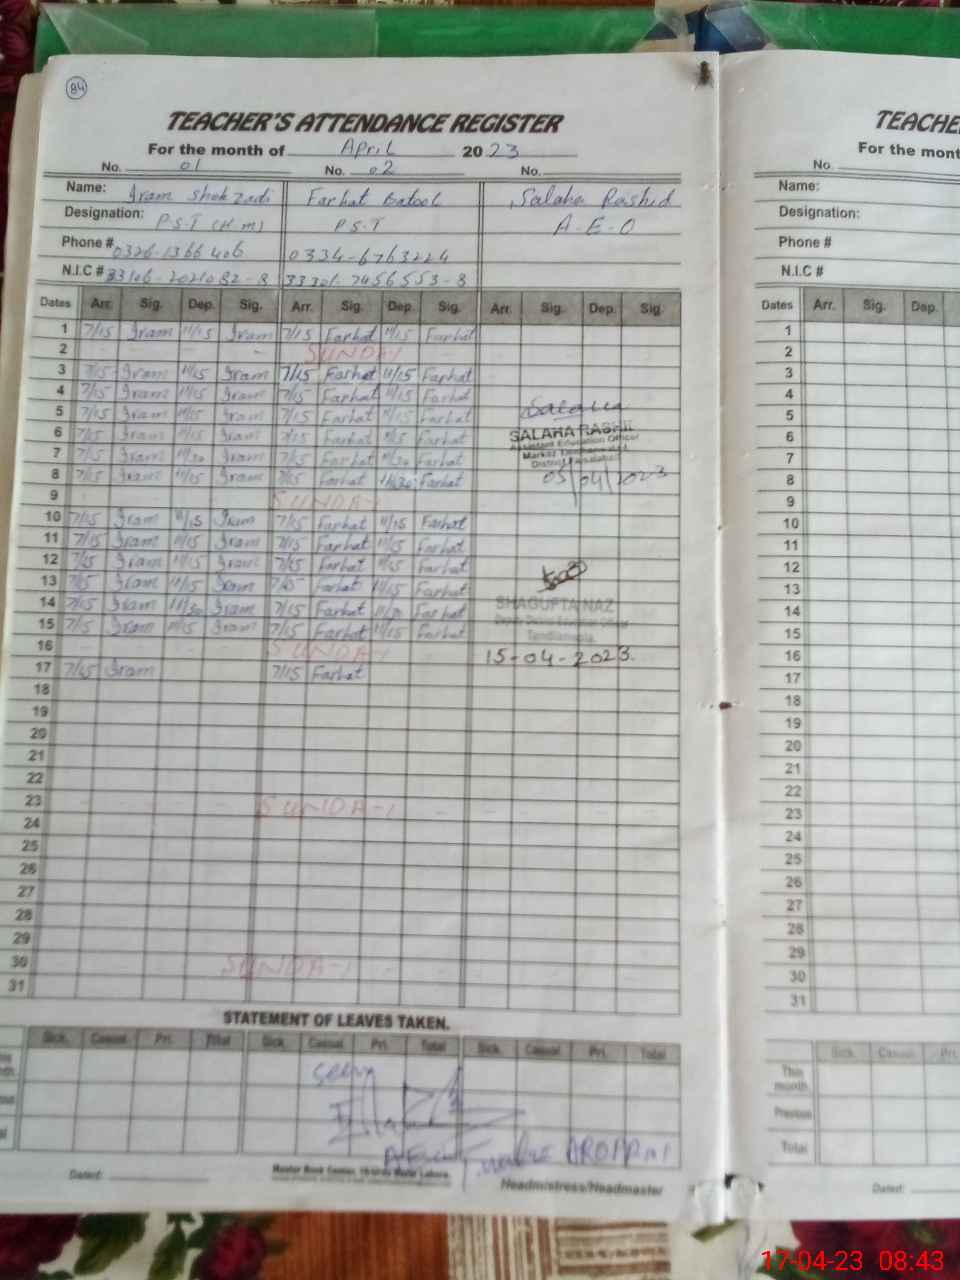 84
TEACHER'S ATTENDANCE REGISTER
For the month of April 2023
No. 01 No. 02 No.
Name: Iram Shahzadi Farhat Batool Salaha Rashid
Designation: P.S.T (H.M) P.S.T A.E.O
Phone # 0326-1366406 0334-6763224
N.I.C #
Dates Arr. Sig. Dep. Sig. Arr. Sig. Dep. Sig. Arr. Sig. Dep. Sig.
1 7/15 Iram 11/15 Iram 7/15 Farhat 11/15 Farhat
2 SUNDAY
3 7/15 Iram 11/15 Iram 7/15 Farhat 11/15 Farhat
4 7/15 Iram 11/15 Iram 7/15 Farhat 11/15 Farhat
5 7/15 Iram 11/15 Iram 7/15 Farhat 11/15 Farhat
6 7/15 Iram 11/15 Iram 7/15 Farhat 11/15 Farhat
7 7/15 Iram 11/30 Iram 7/15 Farhat 11/30 Farhat
8 7/15 Iram 11/15 Iram 7/15 Farhat 11/30 Farhat
9 SUNDAY
10 7/15 Iram 11/15 Iram 7/15 Farhat 11/15 Farhat
11 7/15 Iram 11/15 Iram 7/15 Farhat 11/15 Farhat
12 7/15 Iram 11/15 Iram 7/15 Farhat 11/15 Farhat
13 7/15 Iram 11/15 Iram 7/15 Farhat 11/15 Farhat
14 7/15 Iram 11/30 Iram 7/15 Farhat Farhat
15 7/15 Iram 11/15 Iram 7/15 Farhat 11/15 Farhat
16 SUNDAY
17 7/15 Iram 7/15 Farhat
18
19
20
21
22
23 SUNDAY
24
25
26
27
28
29
30 SUNDAY
31
Salaha
SALAHA RASHID
Assistant Education Officer
Markaz
District Faisalabad
05/04/2023
SHAGUFTA NAZ
Deputy District Education Officer
Tandlianwala
15-04-2023.
STATEMENT OF LEAVES TAKEN.
Sick. Casual. Pri. Total Sick. Casual. Pri. Total Sick. Casual. Pri. Total
Seen
Dated:
Master Book Center, Lahore.
Headmistress/Headmaster
TEACHE
For the mont
No.
Name:
Designation:
Phone #
N.I.C #
Dates Arr. Sig. Dep.
1
2
3
4
5
6
7
8
9
10
11
12
13
14
15
16
17
18
19
20
21
22
23
24
25
26
27
28
29
30
31
Sick. Casual. Pri.
This month.
Previous
Total
Dated:
17-04-23 08:43